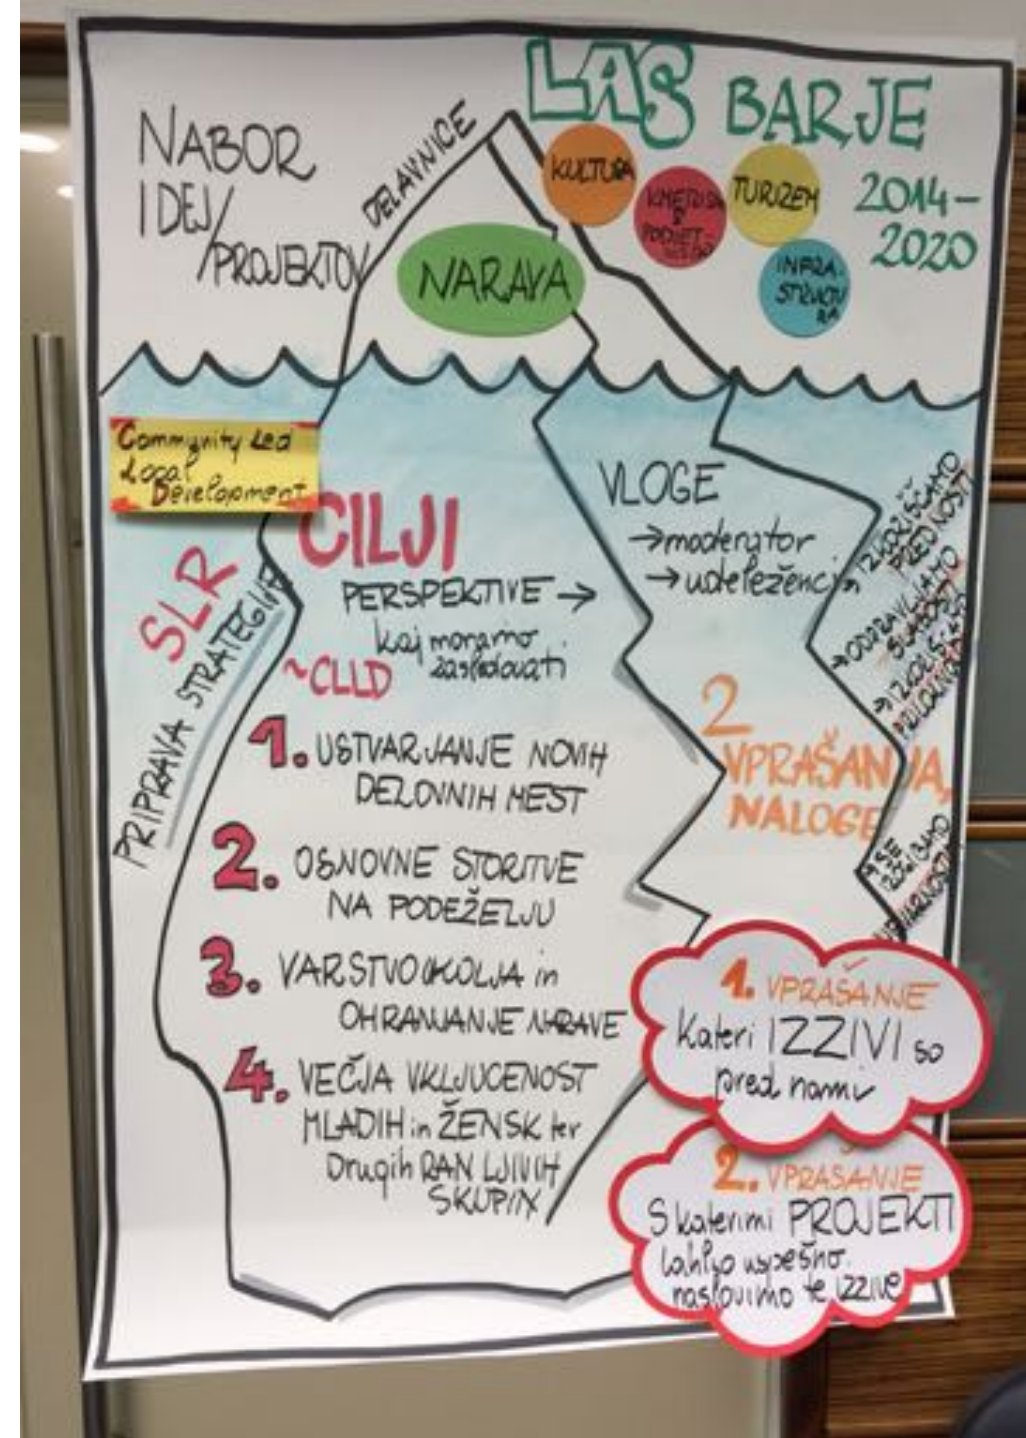 LAS BARJE
2014-
2020
NABOR
IDEJ/
/PROJEKTOV
DELAVNICE
KULTURA
KMETIJS.
&
PODJET-
NIŠTVO
TURIZEM
INFRA-
STRUKTU
RA
NARAVA
Community Led
Local
Development
SLR
PRIPRAVA STRATEGIJE
CILJI
PERSPEKTIVE →
kaj moramo
zasledovati
~CLLD
1. USTVARJANJE NOVIH
DELOVNIH MEST
2. OSNOVNE STORITVE
NA PODEŽELJU
3. VARSTVO OKOLJA in
OHRANJANJE NARAVE
4. VEČJA VKLJUCENOST
MLADIH in ŽENSK ter
Drugih RANLJIVIH
SKUPIN
VLOGE
→ moderator
→ udeleženci
→ IZKORIŠČAMO
PREDNOSTI
→ ODPRAVLJAMO
SLABOSTI
→ IZKORIŠČAMO
PRILOŽNOSTI
→ SE
IZOGIBAMO
NEVARNOSTIM
2
VPRAŠANJA,
NALOGE
1. VPRAŠANJE
Kateri IZZIVI so
pred nami
2. VPRAŠANJE
S katerimi PROJEKTI
lahko uspešno
naslovimo te IZZIVE